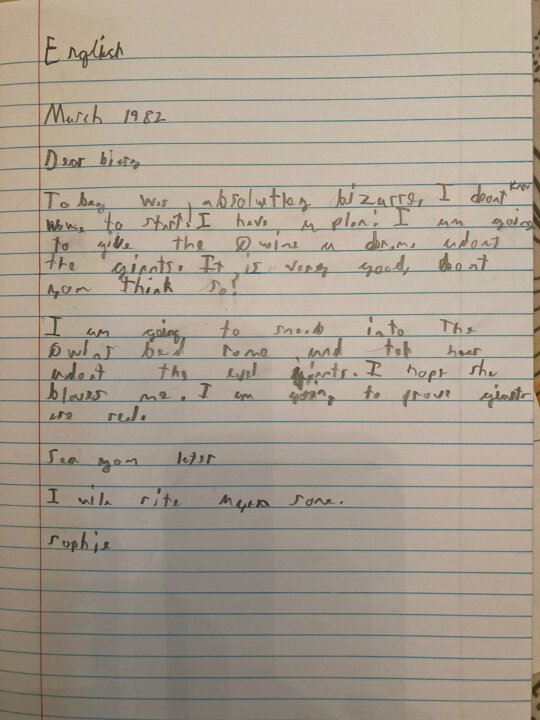 English
March 1982
Dear biary
To bay was absolutley bizurre, I dont know
to start! I have a plan! I am going
to give the Qwine a dreme adout
the giants. It is very good, dont
you think so!
I am going to sneak into the
Qwins bed rome and tell hear
adout the evel giants. I hope she
bloves me. I am going to prove giants
are real.
Sea you later
I will rite agen sone.
Sophie